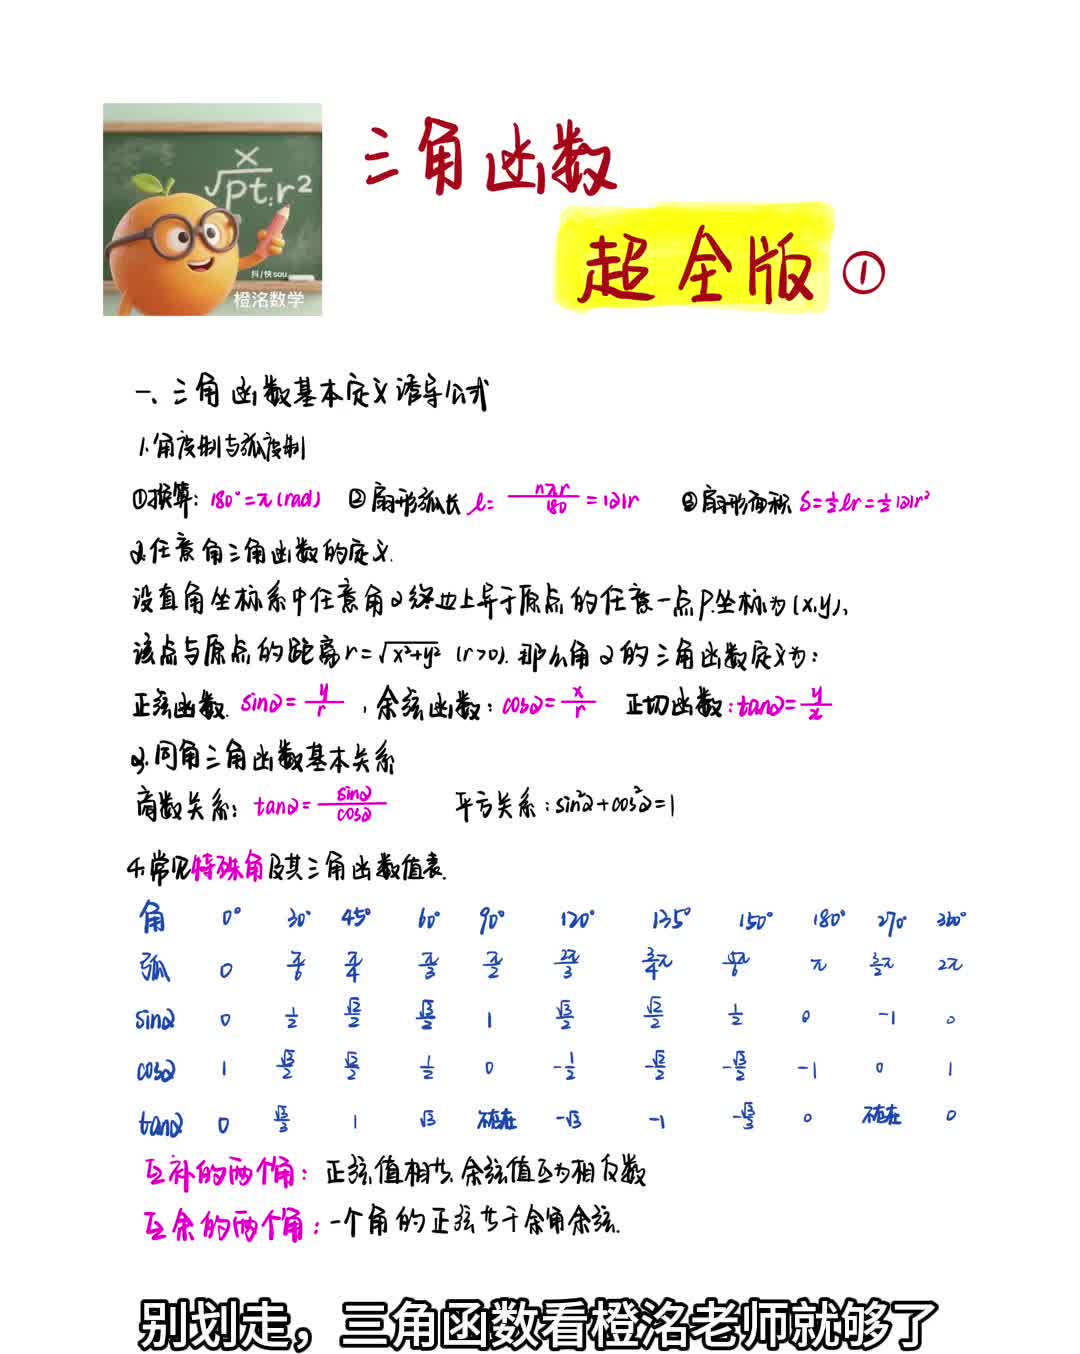 x
√pt:r²
抖/快sou
橙洺数学
三角函数
超全版①
一、三角函数基本定义诱导公式
1.角度制与弧度制
①换算：180°=π(rad) ②扇形弧长 l=nπr/180=|α|r ③扇形面积 S=½lr=½|α|r²
2.任意角三角函数的定义.
设直角坐标系中任意角α终边上异于原点的任意一点P.坐标为(x,y),
该点与原点的距离r=√x²+y² (r>0). 那么角α的三角函数定义为:
正弦函数. sinα=y/r，余弦函数：cosα=x/r 正切函数:tanα=y/x
3.同角三角函数基本关系
商数关系：tanα=sinα/cosα 平方关系:sin²α+cos²α=1
4.常见特殊角及其三角函数值表.
角 0° 30° 45° 60° 90° 120° 135° 150° 180° 270° 360°
弧 0 π/6 π/4 π/3 π/2 2π/3 3/4π 5π/6 π 3/2π 2π
sinα 0 1/2 √2/2 √3/2 1 √3/2 √2/2 1/2 0 -1 0
cosα 1 √3/2 √2/2 1/2 0 -1/2 -√2/2 -√3/2 -1 0 1
tanα 0 √3/3 1 √3 不存在 -√3 -1 -√3/3 0 不存在 0
互补的两个角：正弦值相等.余弦值互为相反数
互余的两个角：一个角的正弦等于余角余弦.
别划走，三角函数看橙洺老师就够了